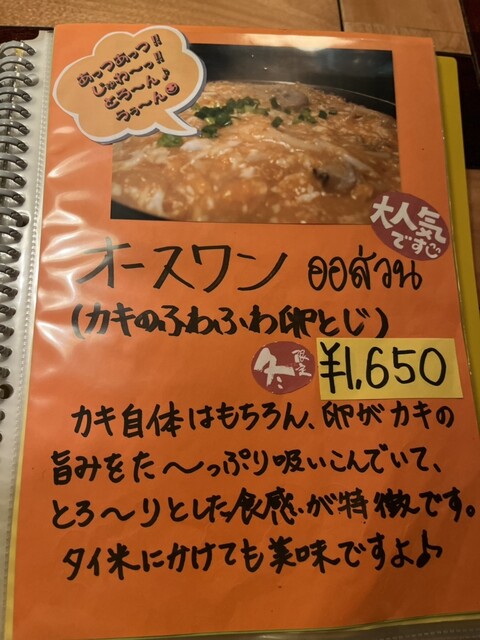 あっつあっつ!!
じゅわ〜っ!!
とろ〜ん♪
うぅ〜ん
大人気
です
オースワン ออส่วน
(カキのふわふわ卵とじ)
冬限定
¥1,650
カキ自体はもちろん、卵がカキの
旨みをた〜っぷり吸いこんでいて、
とろ〜りとした食感が特徴です。
タイ米にかけても美味ですよ♪